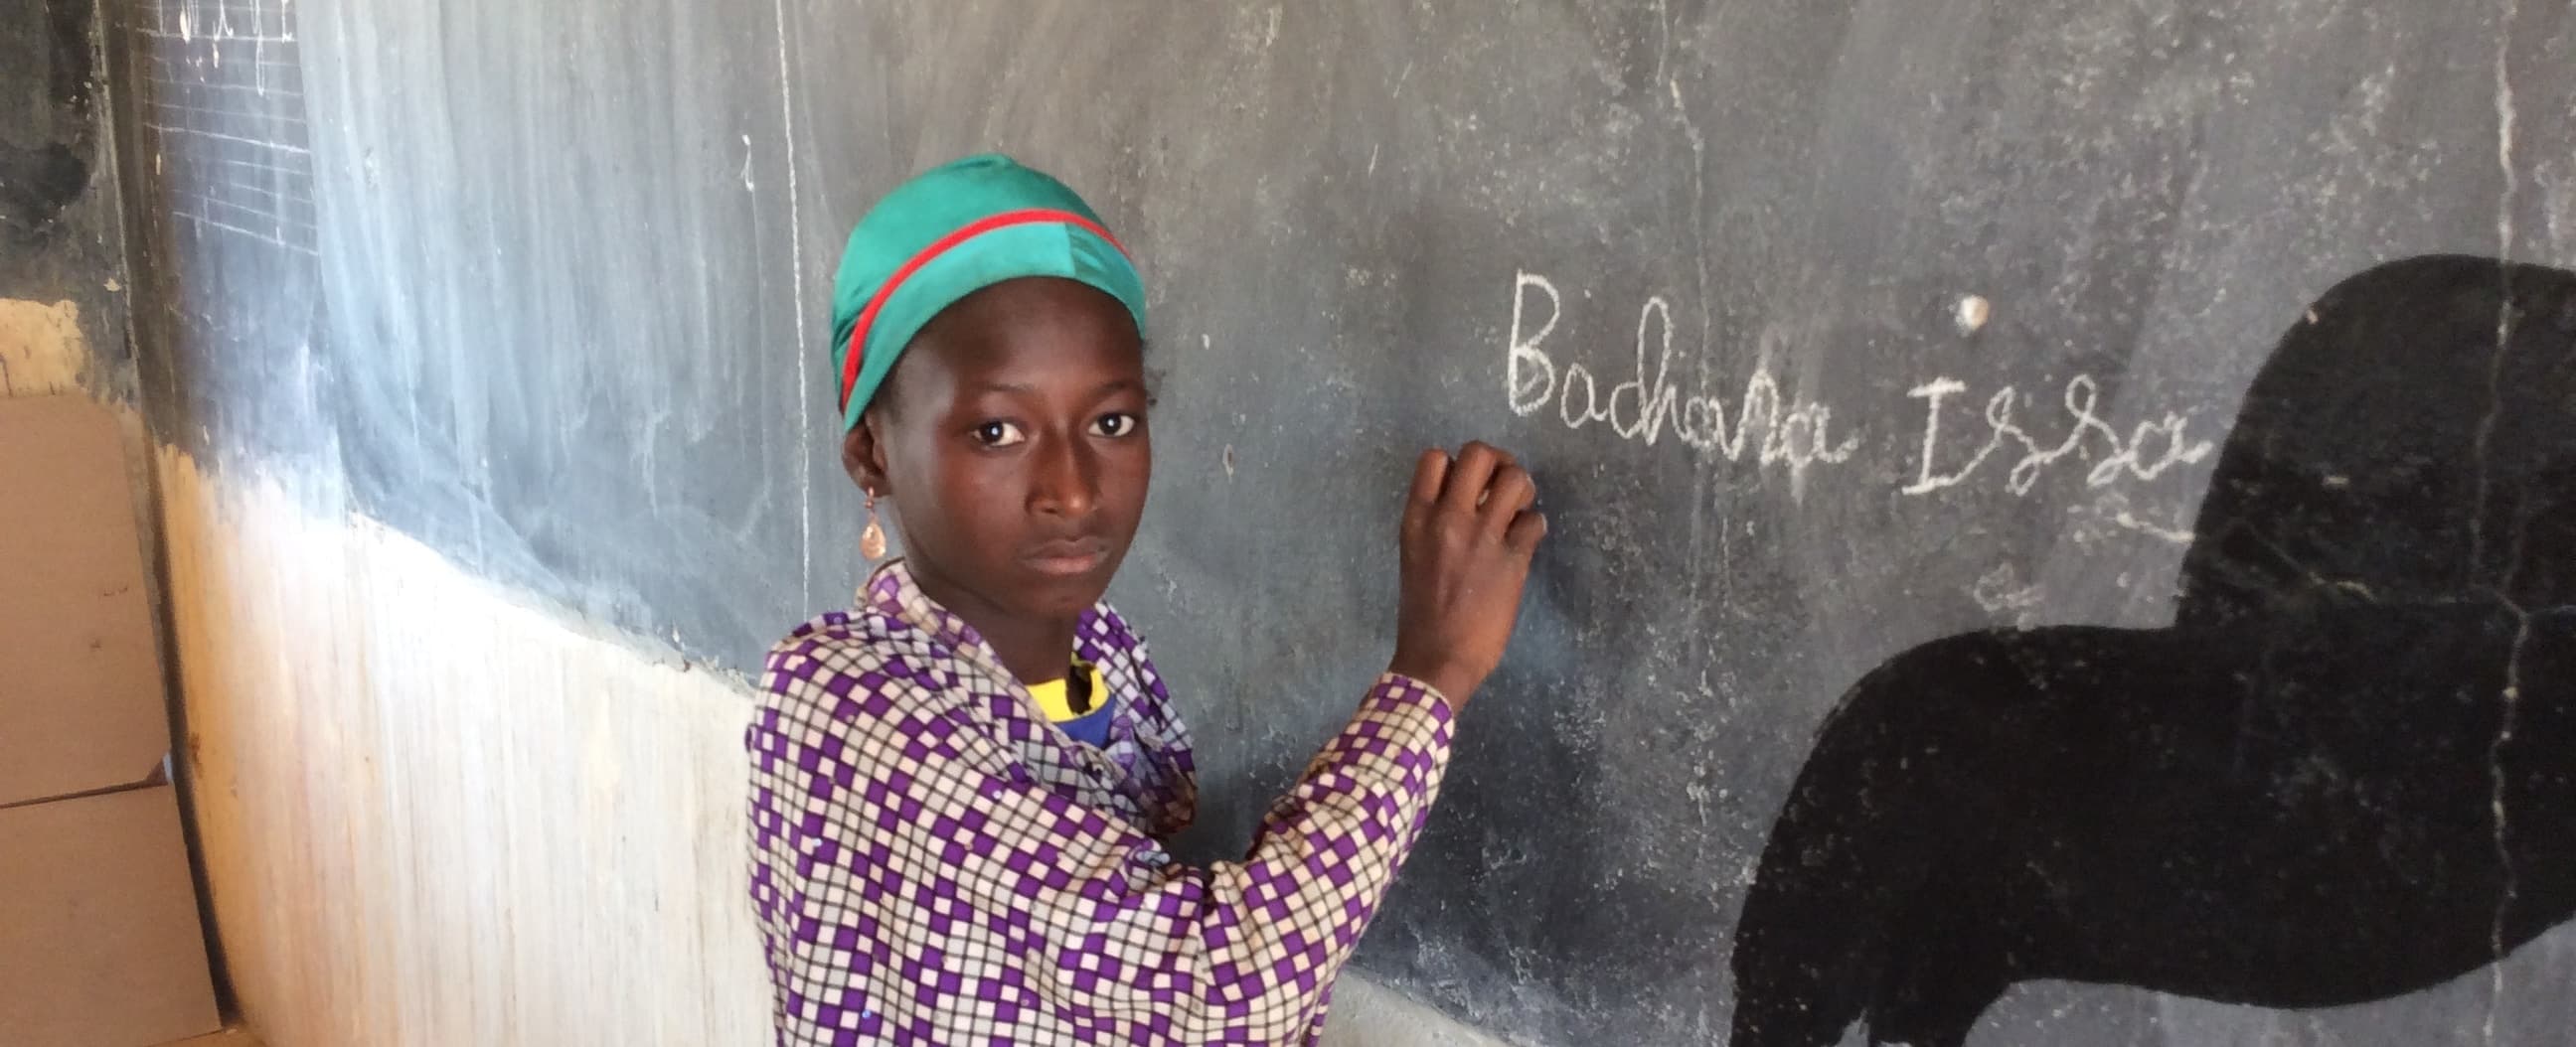 Badhara Issa